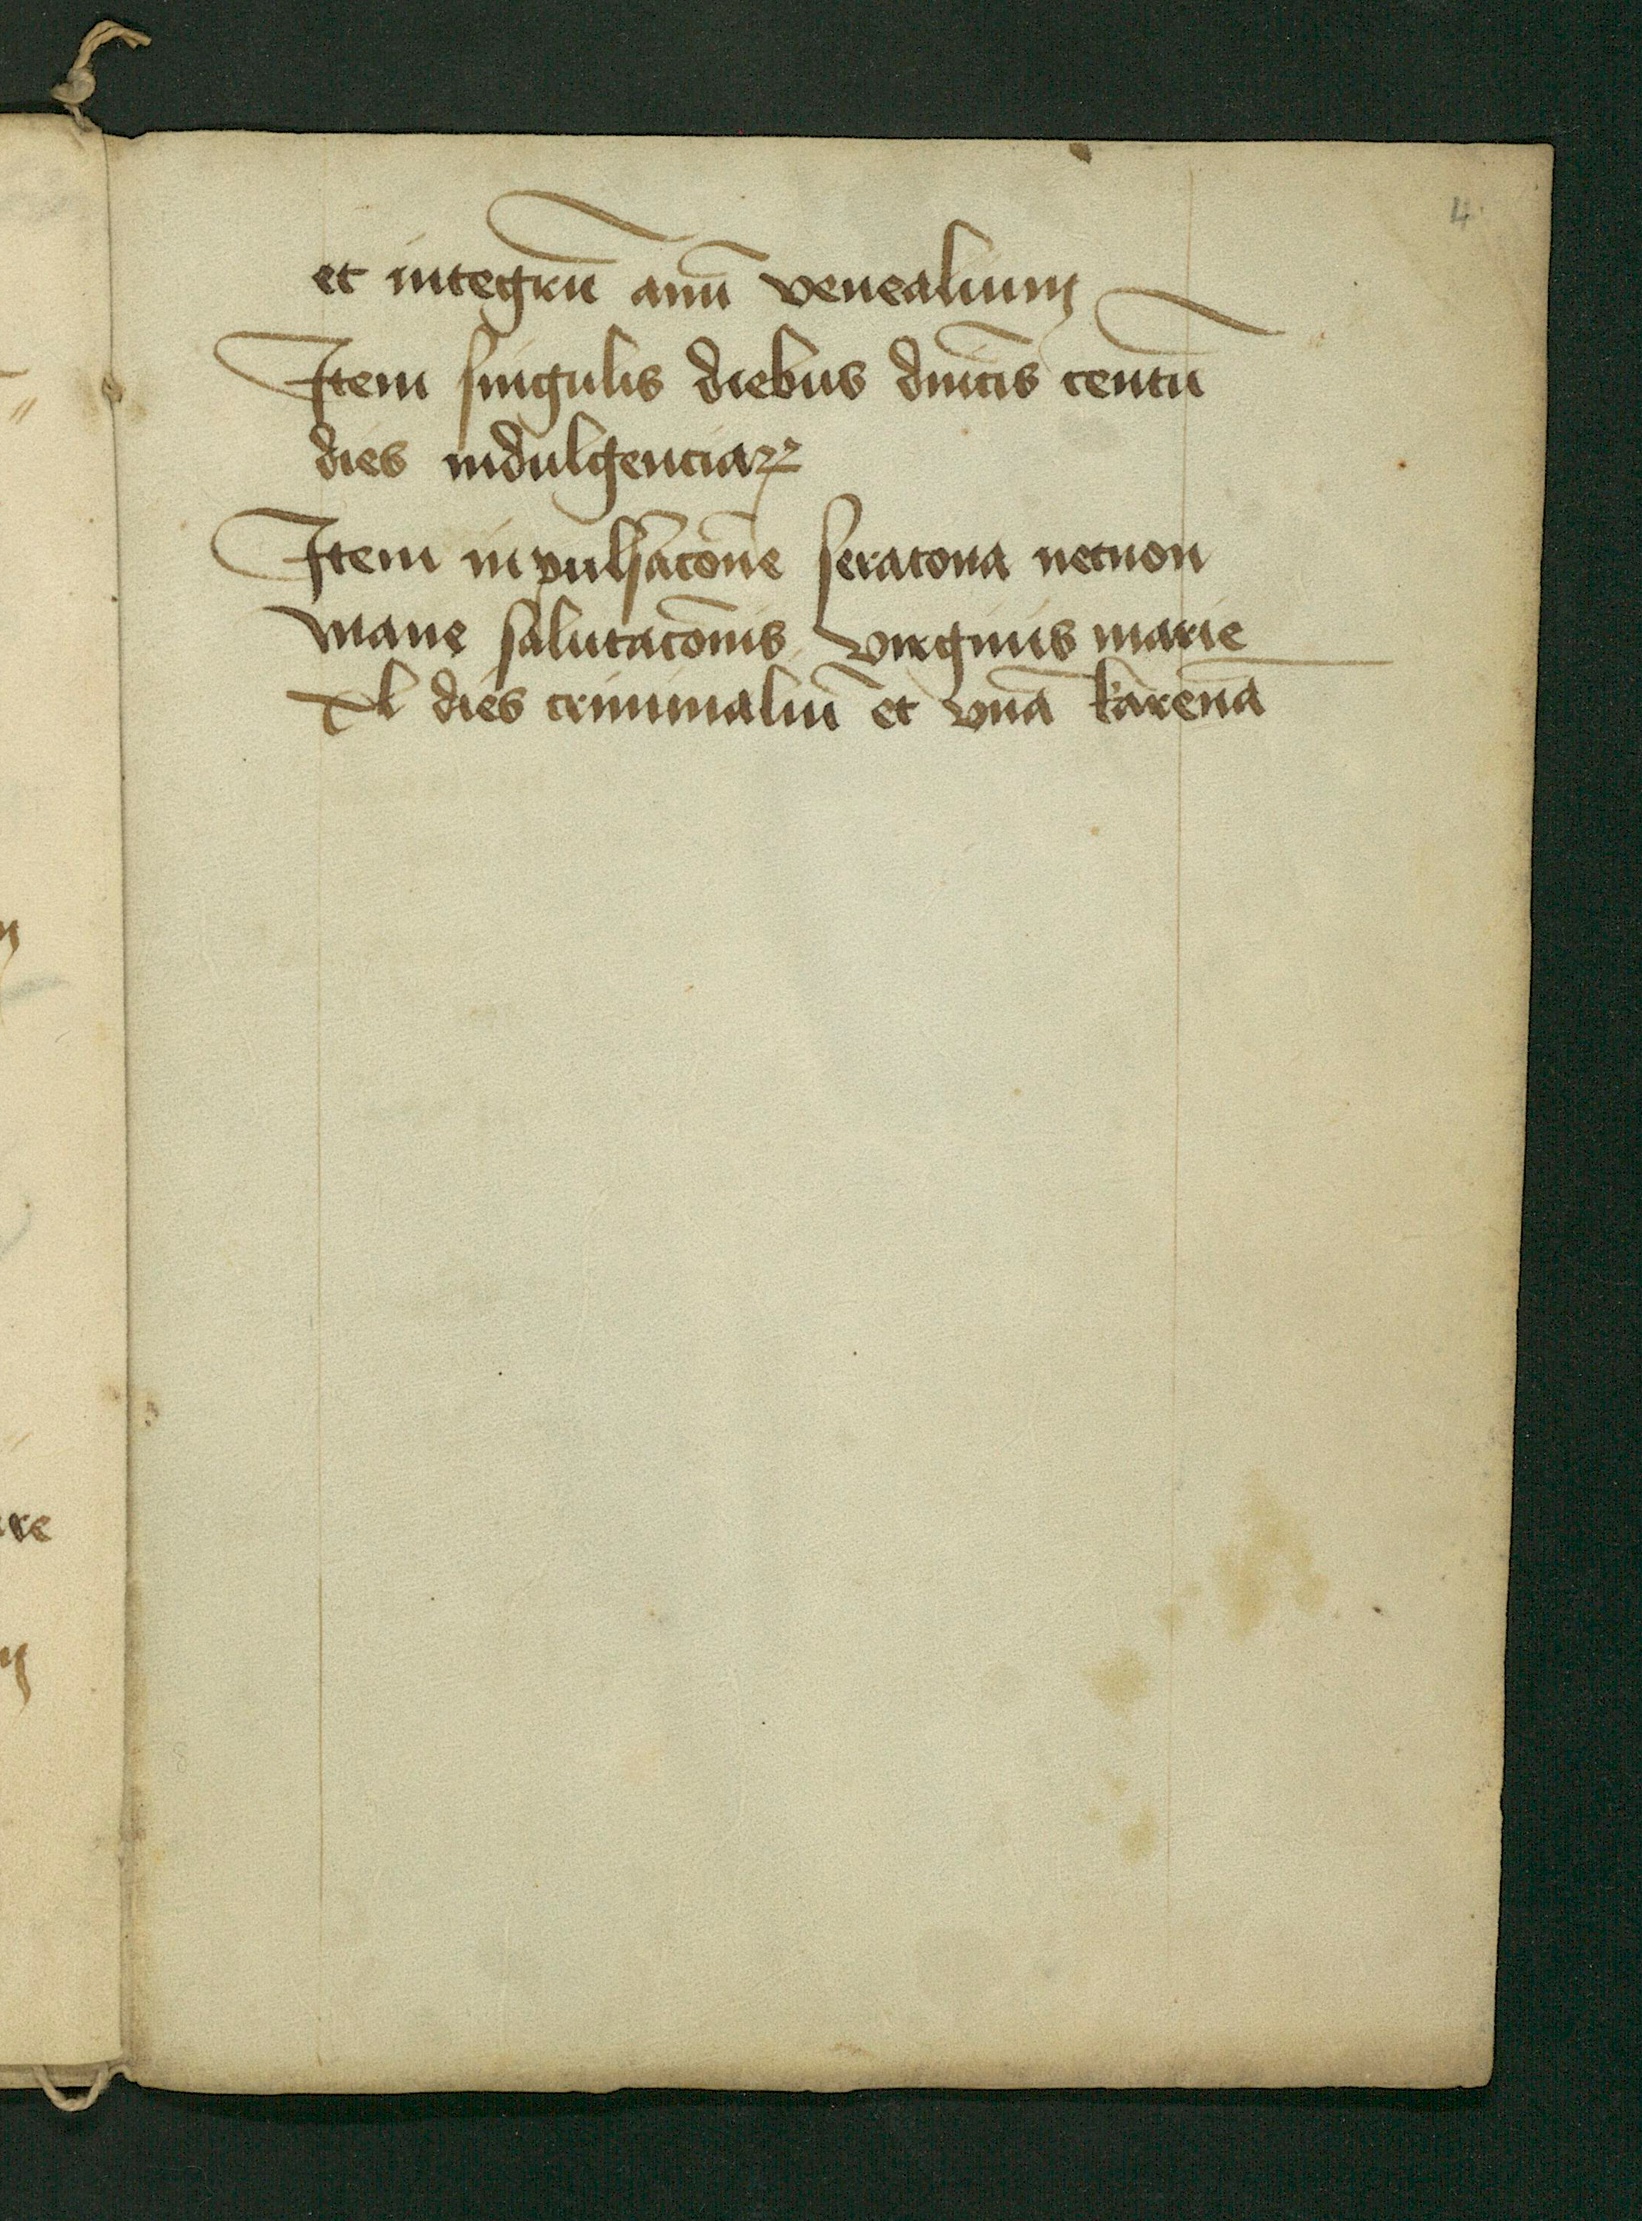 4
et integrū annū venealium
Item singulis diebus dn̄icis centū
dies indulgenciaꝝ
Item in pulsac̄one seratona necnon
mane salutac̄onis virginis marie
xl dies criminaliū et vnā karenā
re